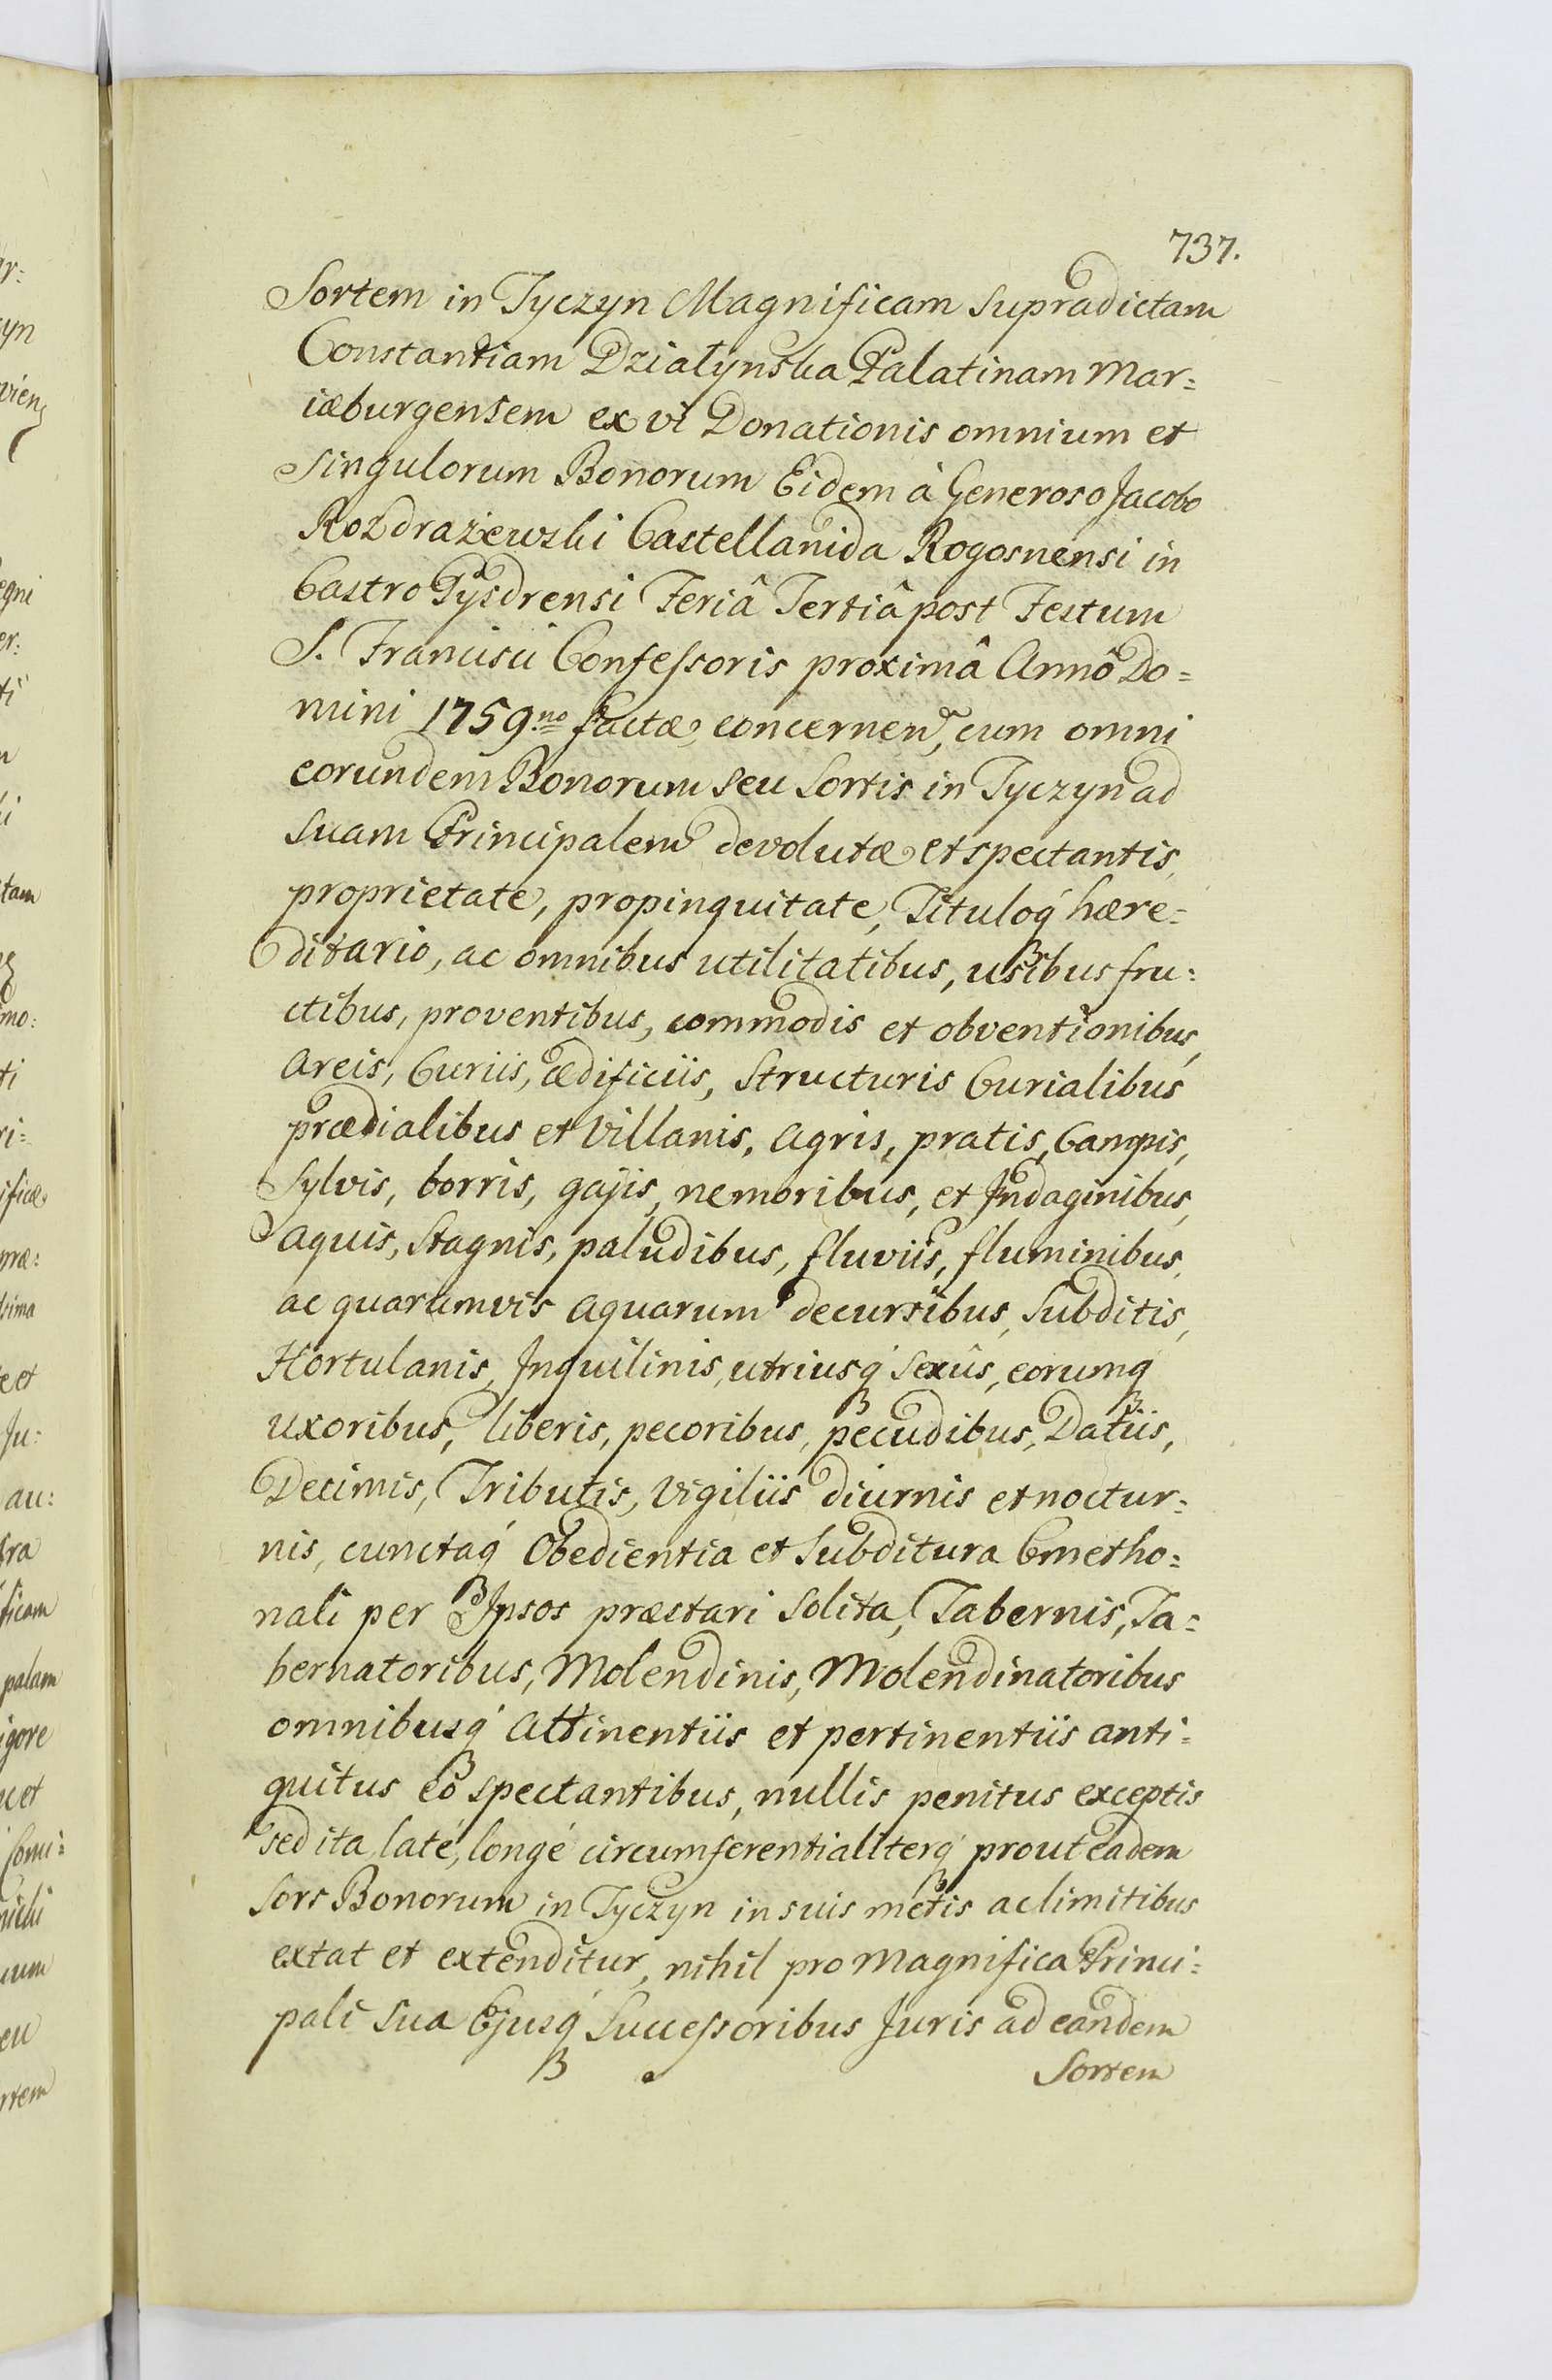 737.
Sortem in Tyczyn Magnificam supradictam
Constantiam Działynska Palatinam Mar=
iæburgensem ex vi Donationis omnium et
singulorum Bonorum Eidem à Generoso Jacobo
Rozdrażewski Castellanida Rogosnensi in
Castro Pysdrensi Feriâ Tertiâ post Festum
S. Francisci Confessoris proximâ Annô Do=
mini 1759.no factæ, concernen, cum omni
eorundem Bonorum seu Sortis in Tyczyn ad
suam Principalem devolutæ et spectantis,
proprietate, propinquitate, Tituloq́ hære=
ditario, ac omnibus utilitatibus, usibus fru=
ctibus, proventibus, commodis et obventionibus,
areis, Curiis, ædificiis, Structuris Curialibus
prædialibus et Villanis, agris, pratis, Campis,
Sylvis, borris, gajis, nemoribus, et Indaginibus,
aquis, Stagnis, paludibus, fluviis, fluminibus,
ac quarumvis aquarum decursibus, Subditis,
Hortulanis, Inquilinis, utriusq́ Sexûs, eorumq́
uxoribus, liberis, pecoribus, pecudibus, Datiis,
Decimis, Tributis, Vigiliis diurnis et noctur=
nis, cunctaq́ Obedientia et Subditura Cmetho=
nali per Ipsos præstari Solita, Tabernis, Ta=
bernatoribus, Molendinis, Molendinatoribus
omnibusq́ attinentiis et pertinentiis anti=
quitus eô spectantibus, nullis penitus exceptis
sed ita laté, longé circumferentialiterq́ prout eadem
Sors Bonorum in Tyczyn in suis metis ac limitibus
extat et extenditur, nihil pro Magnifica Princi=
pali sua Ejusq́ Successoribus Juris ad eandem
Sortem